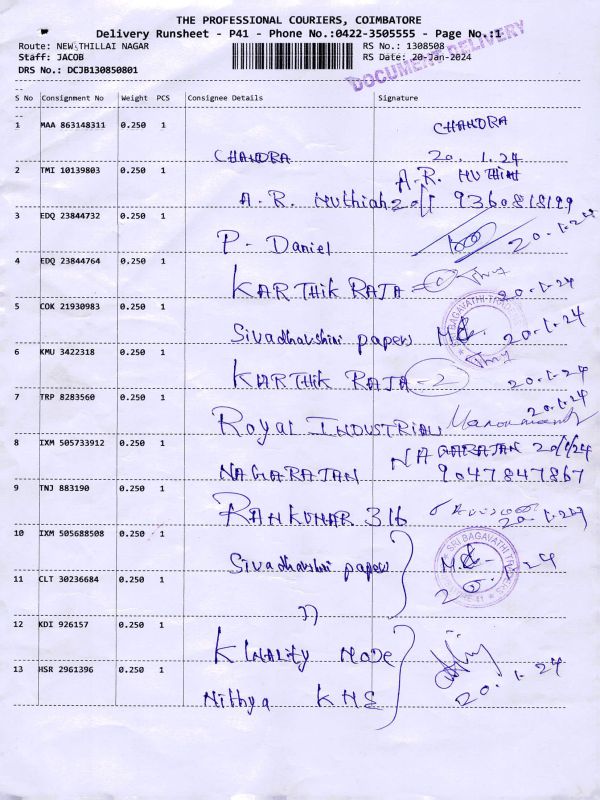 THE PROFESSIONAL COURIERS, COIMBATORE
Delivery Runsheet - P41 - Phone No.:0422-3505555 - Page No.:1
Route: NEW THILLAI NAGAR
RS No.: 1308508
Staff: JACOB
RS Date: 20-Jan-2024
DRS No.: DCJB130850801
DOCUMENT DELIVERY
S No Consignment No Weight PCS Consignee Details Signature
1 MAA 863148311 0.250 1 CHANDRA CHANDRA
20. 1.24
2 TMI 10139803 0.250 1 A.R. Muthiah A.R. MUTHIAH
9360818199
3 EDQ 23844732 0.250 1 P- Daniel 20.1.24
4 EDQ 23844764 0.250 1 KARTHIK RAJA 20.1.24
5 COK 21930983 0.250 1 Sivadharshini papers 20.1.24
6 KMU 3422318 0.250 1 KARTHIK RAJA -2 20.1.24
7 TRP 8283560 0.250 1 Royal INDUSTRIAL 20.1.24
8 IXM 505733912 0.250 1 NAGARAJAN NAGARAJAN 20/1/24
9047847867
9 TNJ 883190 0.250 1 RAMKUMAR 316 20.1.24
10 IXM 505688508 0.250 1 Sivadharshini papers
SRI BAGAVATHI TRADERS
11 CLT 30236684 0.250 1 ))
12 KDI 926157 0.250 1 KINALITY MADE
13 HSR 2961396 0.250 1 Nithya KNE 20.1.24